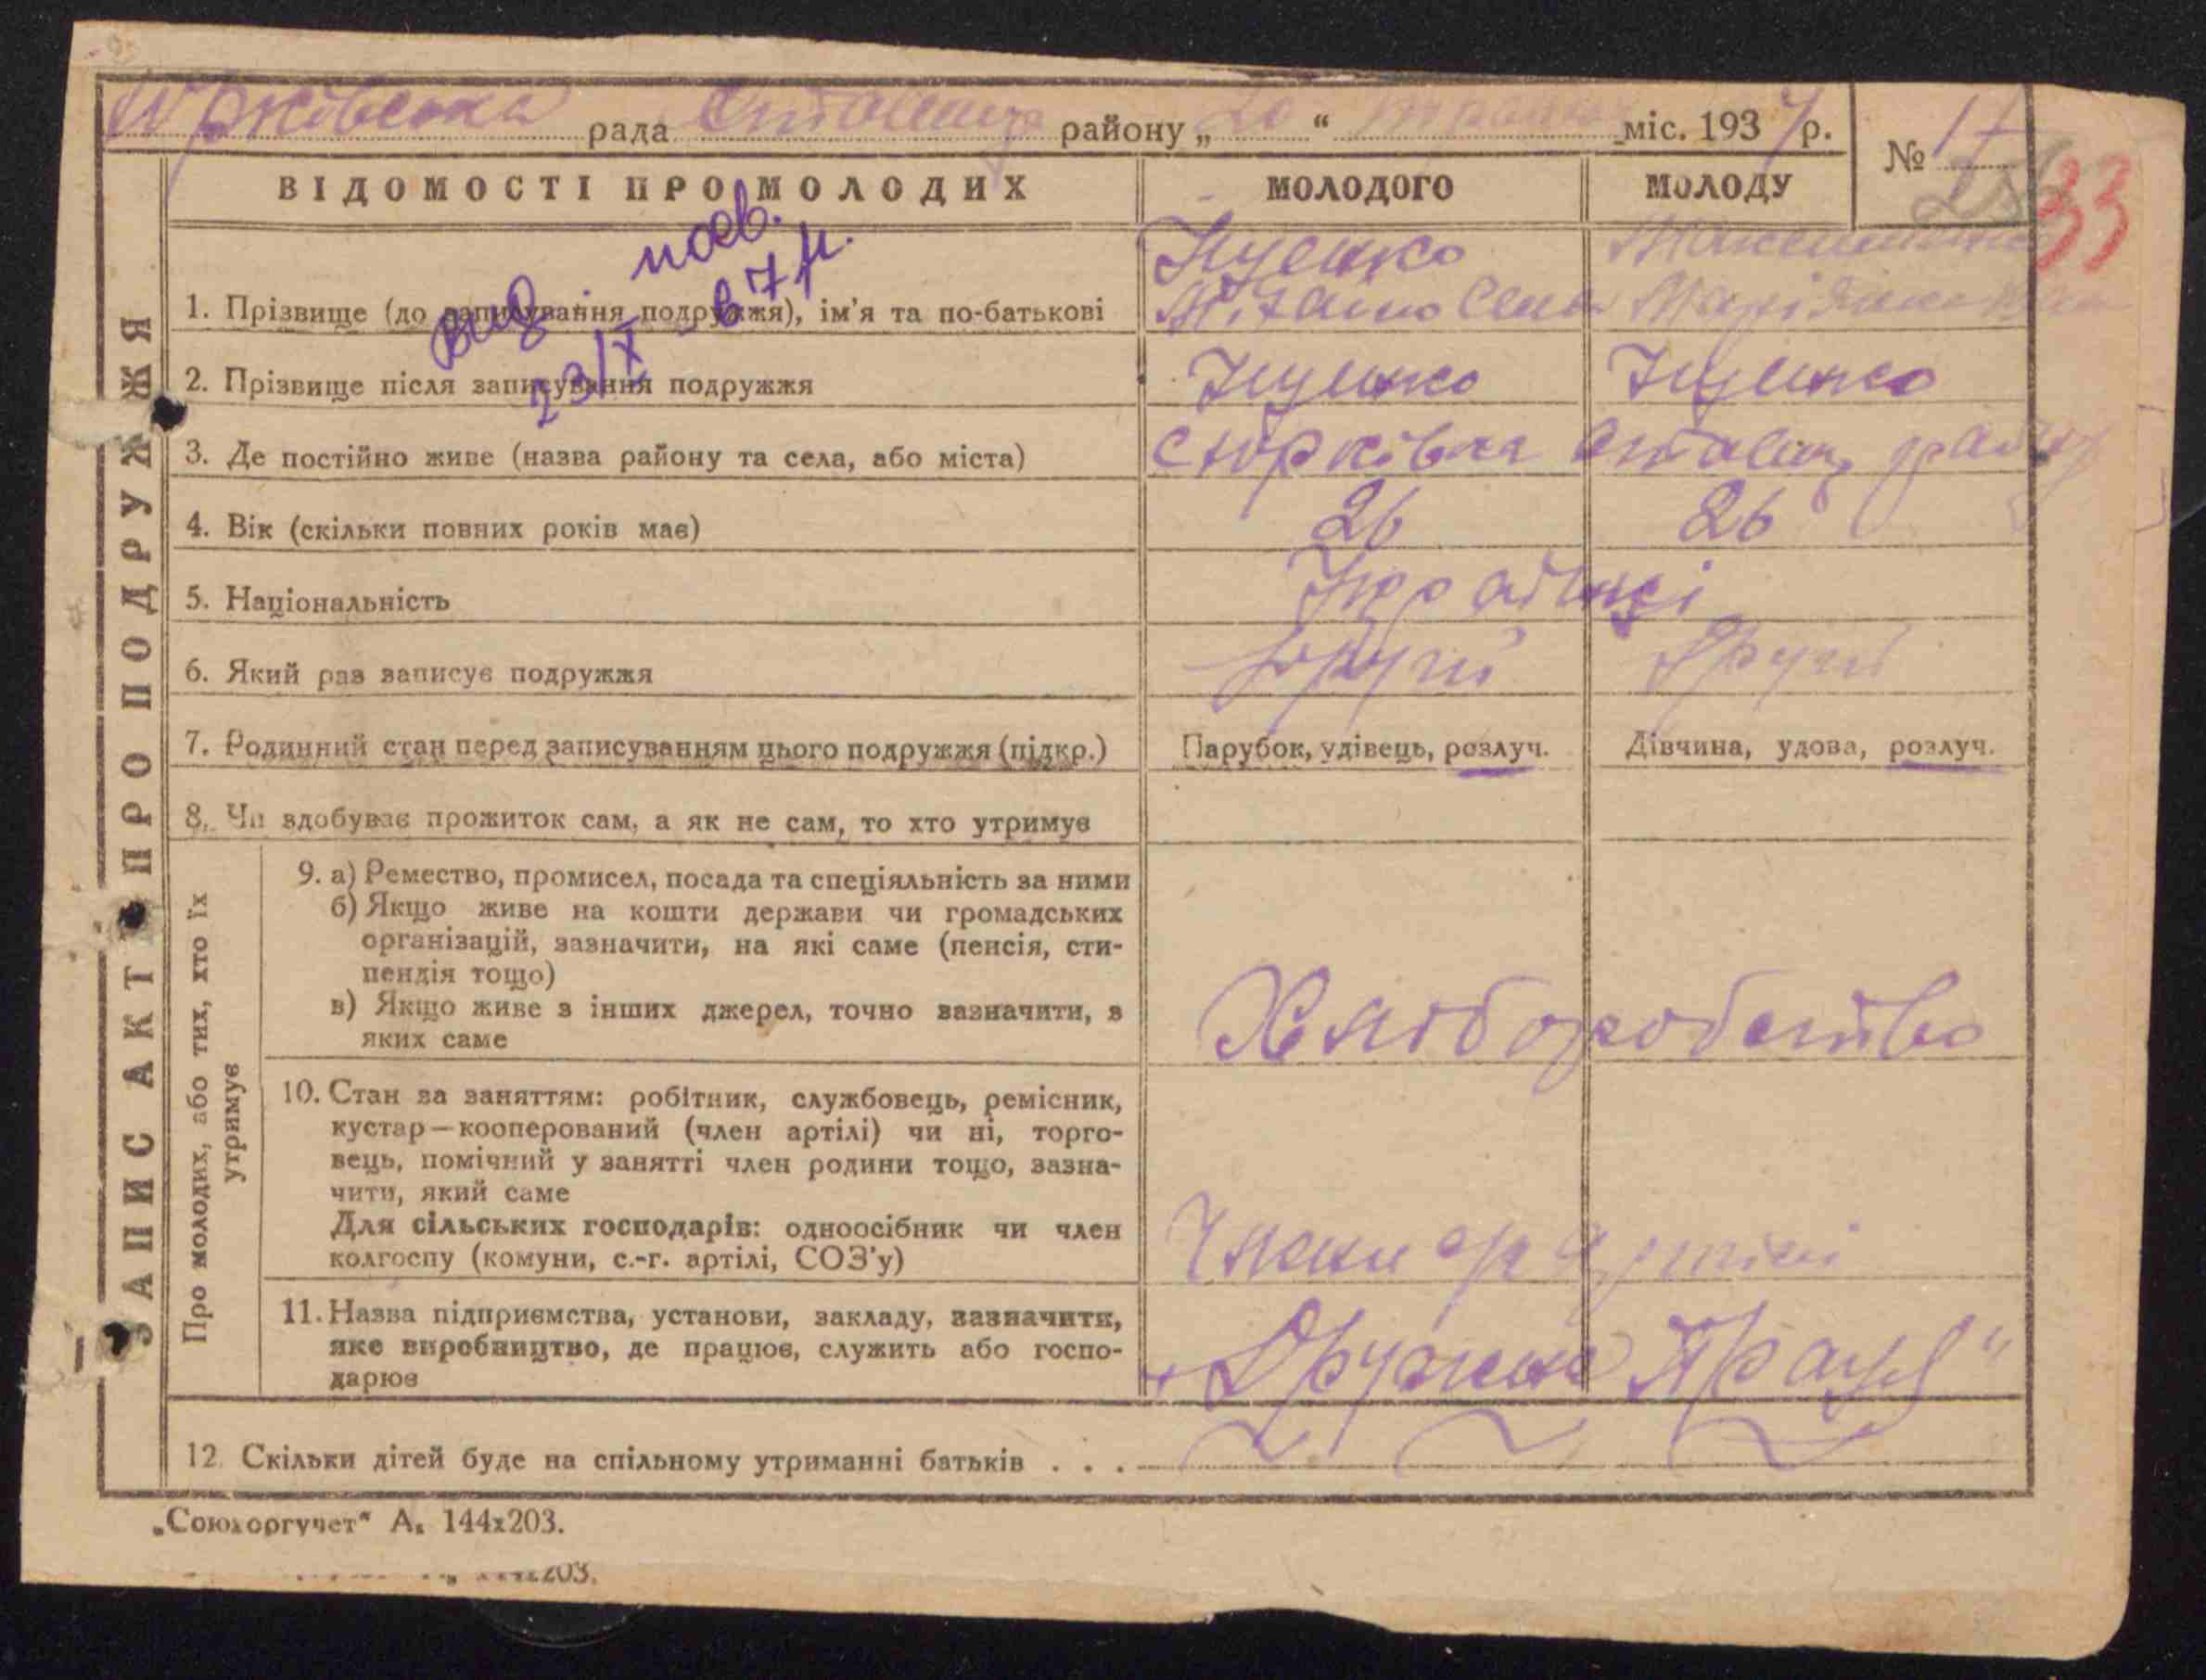 рада району „ 20 “ міс. 193 р.
№ 17
33
ВІДОМОСТІ ПРО МОЛОДИХ
МОЛОДОГО
МОЛОДУ
вид. пов.
23/X – 67 р.
1. Прізвище (до записування подружжя), ім’я та по-батькові
2. Прізвище після записування подружжя
3. Де постійно живе (назва району та села, або міста)
Сюрківка
4. Вік (скільки повних років має)
26
26
5. Національність
Українці
6. Який раз записує подружжя
другий
другий
7. Родинний стан перед записуванням цього подружжя (підкр.)
Парубок, удівець, розлуч.
Дівчина, удова, розлуч.
8. Чи здобуває прожиток сам, а як не сам, то хто утримує
9. а) Ремество, промисел, посада та спеціяльність за ними
б) Якщо живе на кошти держави чи громадських
організацій, зазначити, на які саме (пенсія, сти-
пендія тощо)
в) Якщо живе з інших джерел, точно зазначити, з
яких саме
Хліборобство
10. Стан за заняттям: робітник, службовець, ремісник,
кустар—кооперований (член артілі) чи ні, торго-
вець, помічний у занятті член родини тощо, зазна-
чити, який саме
Для сільських господарів: одноосібник чи член
колгоспу (комуни, с.-г. артілі, СОЗ’у)
11. Назва підприємства, установи, закладу, зазначити,
яке виробництво, де працює, служить або госпо-
дарює
„Дружна Праця“
12. Скільки дітей буде на спільному утриманні батьків . . .
ЗАПИС АКТ ПРО ПОДРУЖЖЯ
Про молодих, або тих, хто їх
утримує
„Союзоргучет“ А. 144х203.
203.